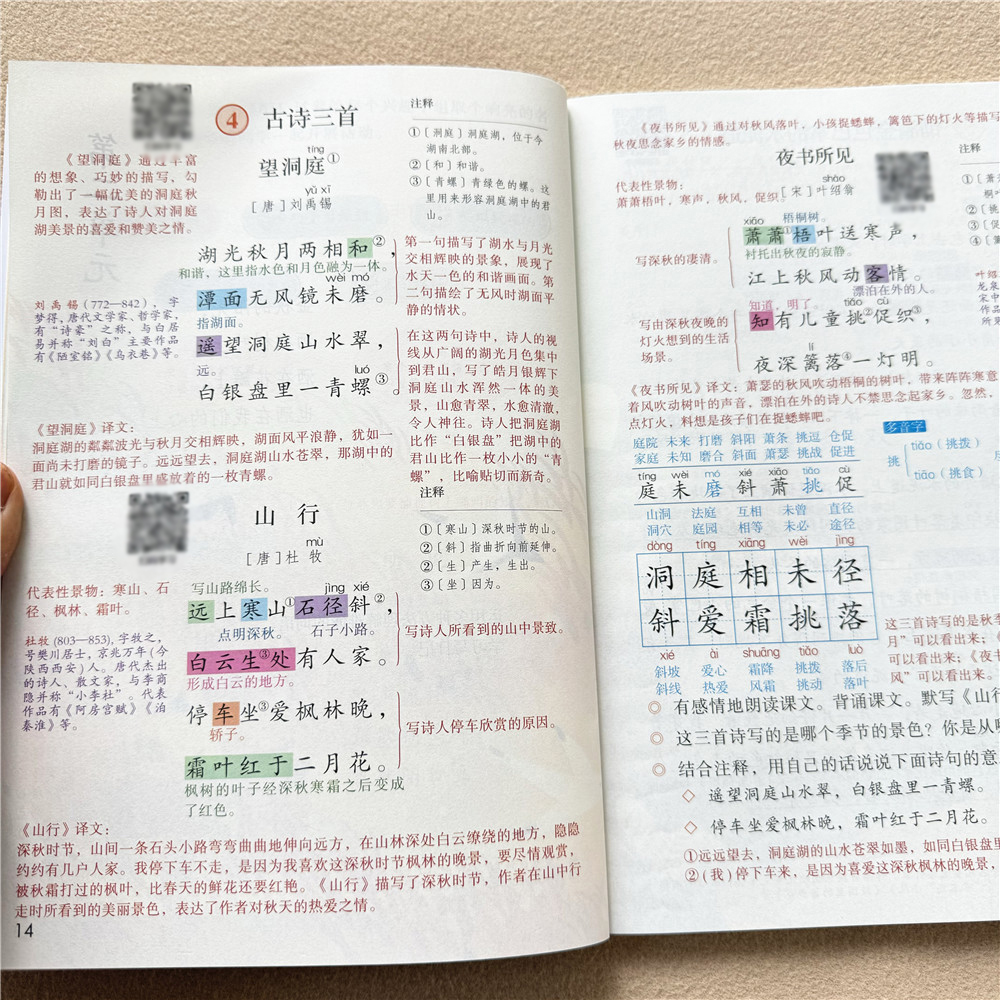 ④ 古诗三首
望洞庭①
tíng
[唐]刘禹锡
yǔ xī
《望洞庭》通过丰富
的想象、巧妙的描写，勾
勒出了一幅优美的洞庭秋
月图，表达了诗人对洞庭
湖美景的喜爱和赞美之情。
注释
①〔洞庭〕洞庭湖，位于今
湖南北部。
②〔和〕和谐。
③〔青螺〕青绿色的螺。这
里用来形容洞庭湖中的君
山。
湖光秋月两相和②，
和谐、这里指水色和月色融为一体。
wèi mó
潭面无风镜未磨。
指湖面。
遥望洞庭山水翠，
远。
luó
白银盘里一青螺③。
第一句描写了湖水与月光
交相辉映的景象，展现了
水天一色的和谐画面。第
二句描绘了无风时湖面平
静的情状。
在这两句诗中，诗人的视
线从广阔的湖光月色集中
到君山，写了皓月银辉下
洞庭山水浑然一体的美
景，山愈青翠，水愈清澈，
令人神往。诗人把洞庭湖
比作“白银盘”把湖中的
君山比作一枚小小的“青
螺”，比喻贴切而新奇。
刘禹锡(772—842)，字
梦得，唐代文学家、哲学家，
有“诗豪”之称，与白居
易并称“刘白”主要作品
有《陋室铭》《乌衣巷》等。
《望洞庭》译文：
洞庭湖的粼粼波光与秋月交相辉映，湖面风平浪静，犹如一
面尚未打磨的镜子。远远望去，洞庭湖山水苍翠，那湖中的
君山就如同白银盘里盛放着的一枚青螺。
山行
mù
[唐]杜牧
注释
①〔寒山〕深秋时节的山。
②〔斜〕指曲折向前延伸。
③〔生〕产生，生出。
③〔坐〕因为。
代表性景物：寒山、石
径、枫林、霜叶。
杜牧(803—853)，字牧之，
号樊川居士，京兆万年(今
陕西西安）人。唐代杰出
的诗人、散文家，与李商
隐并称“小李杜”。代表
作品有《阿房宫赋》《泊
秦淮》等。
写山路绵长。
jìng xié
远上寒山①石径斜②，
点明深秋。 石子小路。
白云生③处有人家。
形成白云的地方。
写诗人所看到的山中景致。
停车坐③爱枫林晚，
轿子。
霜叶红于二月花。
枫树的叶子经深秋寒霜之后变成
了红色。
写诗人停车欣赏的原因。
《山行》译文：
深秋时节，山间一条石头小路弯弯曲曲地伸向远方，在山林深处白云缭绕的地方，隐隐
约约有几户人家。我停下车不走，是因为我喜欢这深秋时节枫林的晚景，要尽情观赏，
被秋霜打过的枫叶，比春天的鲜花还要红艳。《山行》描写了深秋时节，作者在山中行
走时所看到的美丽景色，表达了作者对秋天的热爱之情。
14
《夜书所见》通过对秋风落叶，小孩捉蟋蟀，篱笆下的灯火等描写
秋夜思念家乡的情感。
夜书所见
注释
代表性景物：
萧萧梧叶，寒声，秋风，促织。
sháo
[宋]叶绍翁
xiāo 梧桐树。
萧萧①梧叶送寒声，
衬托出秋夜的寂静。
江上秋风动客情。
漂泊在外的人。
写深秋的凄清。
知道，明了。 tiǎo cù
知有儿童挑②促织③，
lí
夜深篱落④一灯明。
写由深秋夜晚的
灯火想到的生活
场景。
《夜书所见》译文：萧瑟的秋风吹动梧桐的树叶，带来阵阵寒意
着风吹动树叶的声音，漂泊在外的诗人不禁思念起家乡。忽然，
点灯火，料想是孩子们在捉蟋蟀吧。
庭院 未来 打磨 斜阳 萧条 挑逗 仓促
家庭 未知 磨合 斜面 萧瑟 挑战 促进
tíng wèi mó xié xiāo tiǎo cù
庭 未 磨 斜 萧 挑 促
多音字
挑
tiǎo（挑拨）
tiāo（挑食）
山洞 法庭 互相 未曾 直径
洞穴 庭园 相等 未必 途径
dòng tíng xiāng wèi jìng
洞 庭 相 未 径
斜 爱 霜 挑 落
xié ài shuāng tiǎo luò
斜坡 爱心 霜降 挑拨 落后
斜线 热爱 风霜 挑动 落叶
这三首诗写的是秋季
月”可以看出来；《
可以看出来；《夜
风”可以看出来。
◎ 有感情地朗读课文。背诵课文。默写《山行
◎ 这三首诗写的是哪个季节的景色？你是从哪
◎ 结合注释，用自己的话说说下面诗句的意
◇ 遥望洞庭山水翠，白银盘里一青螺。
◇ 停车坐爱枫林晚，霜叶红于二月花。
①远远望去，洞庭湖的山水苍翠如墨，如同白银盘里
②(我)停下车来，是因为喜爱这深秋枫林的晚景，